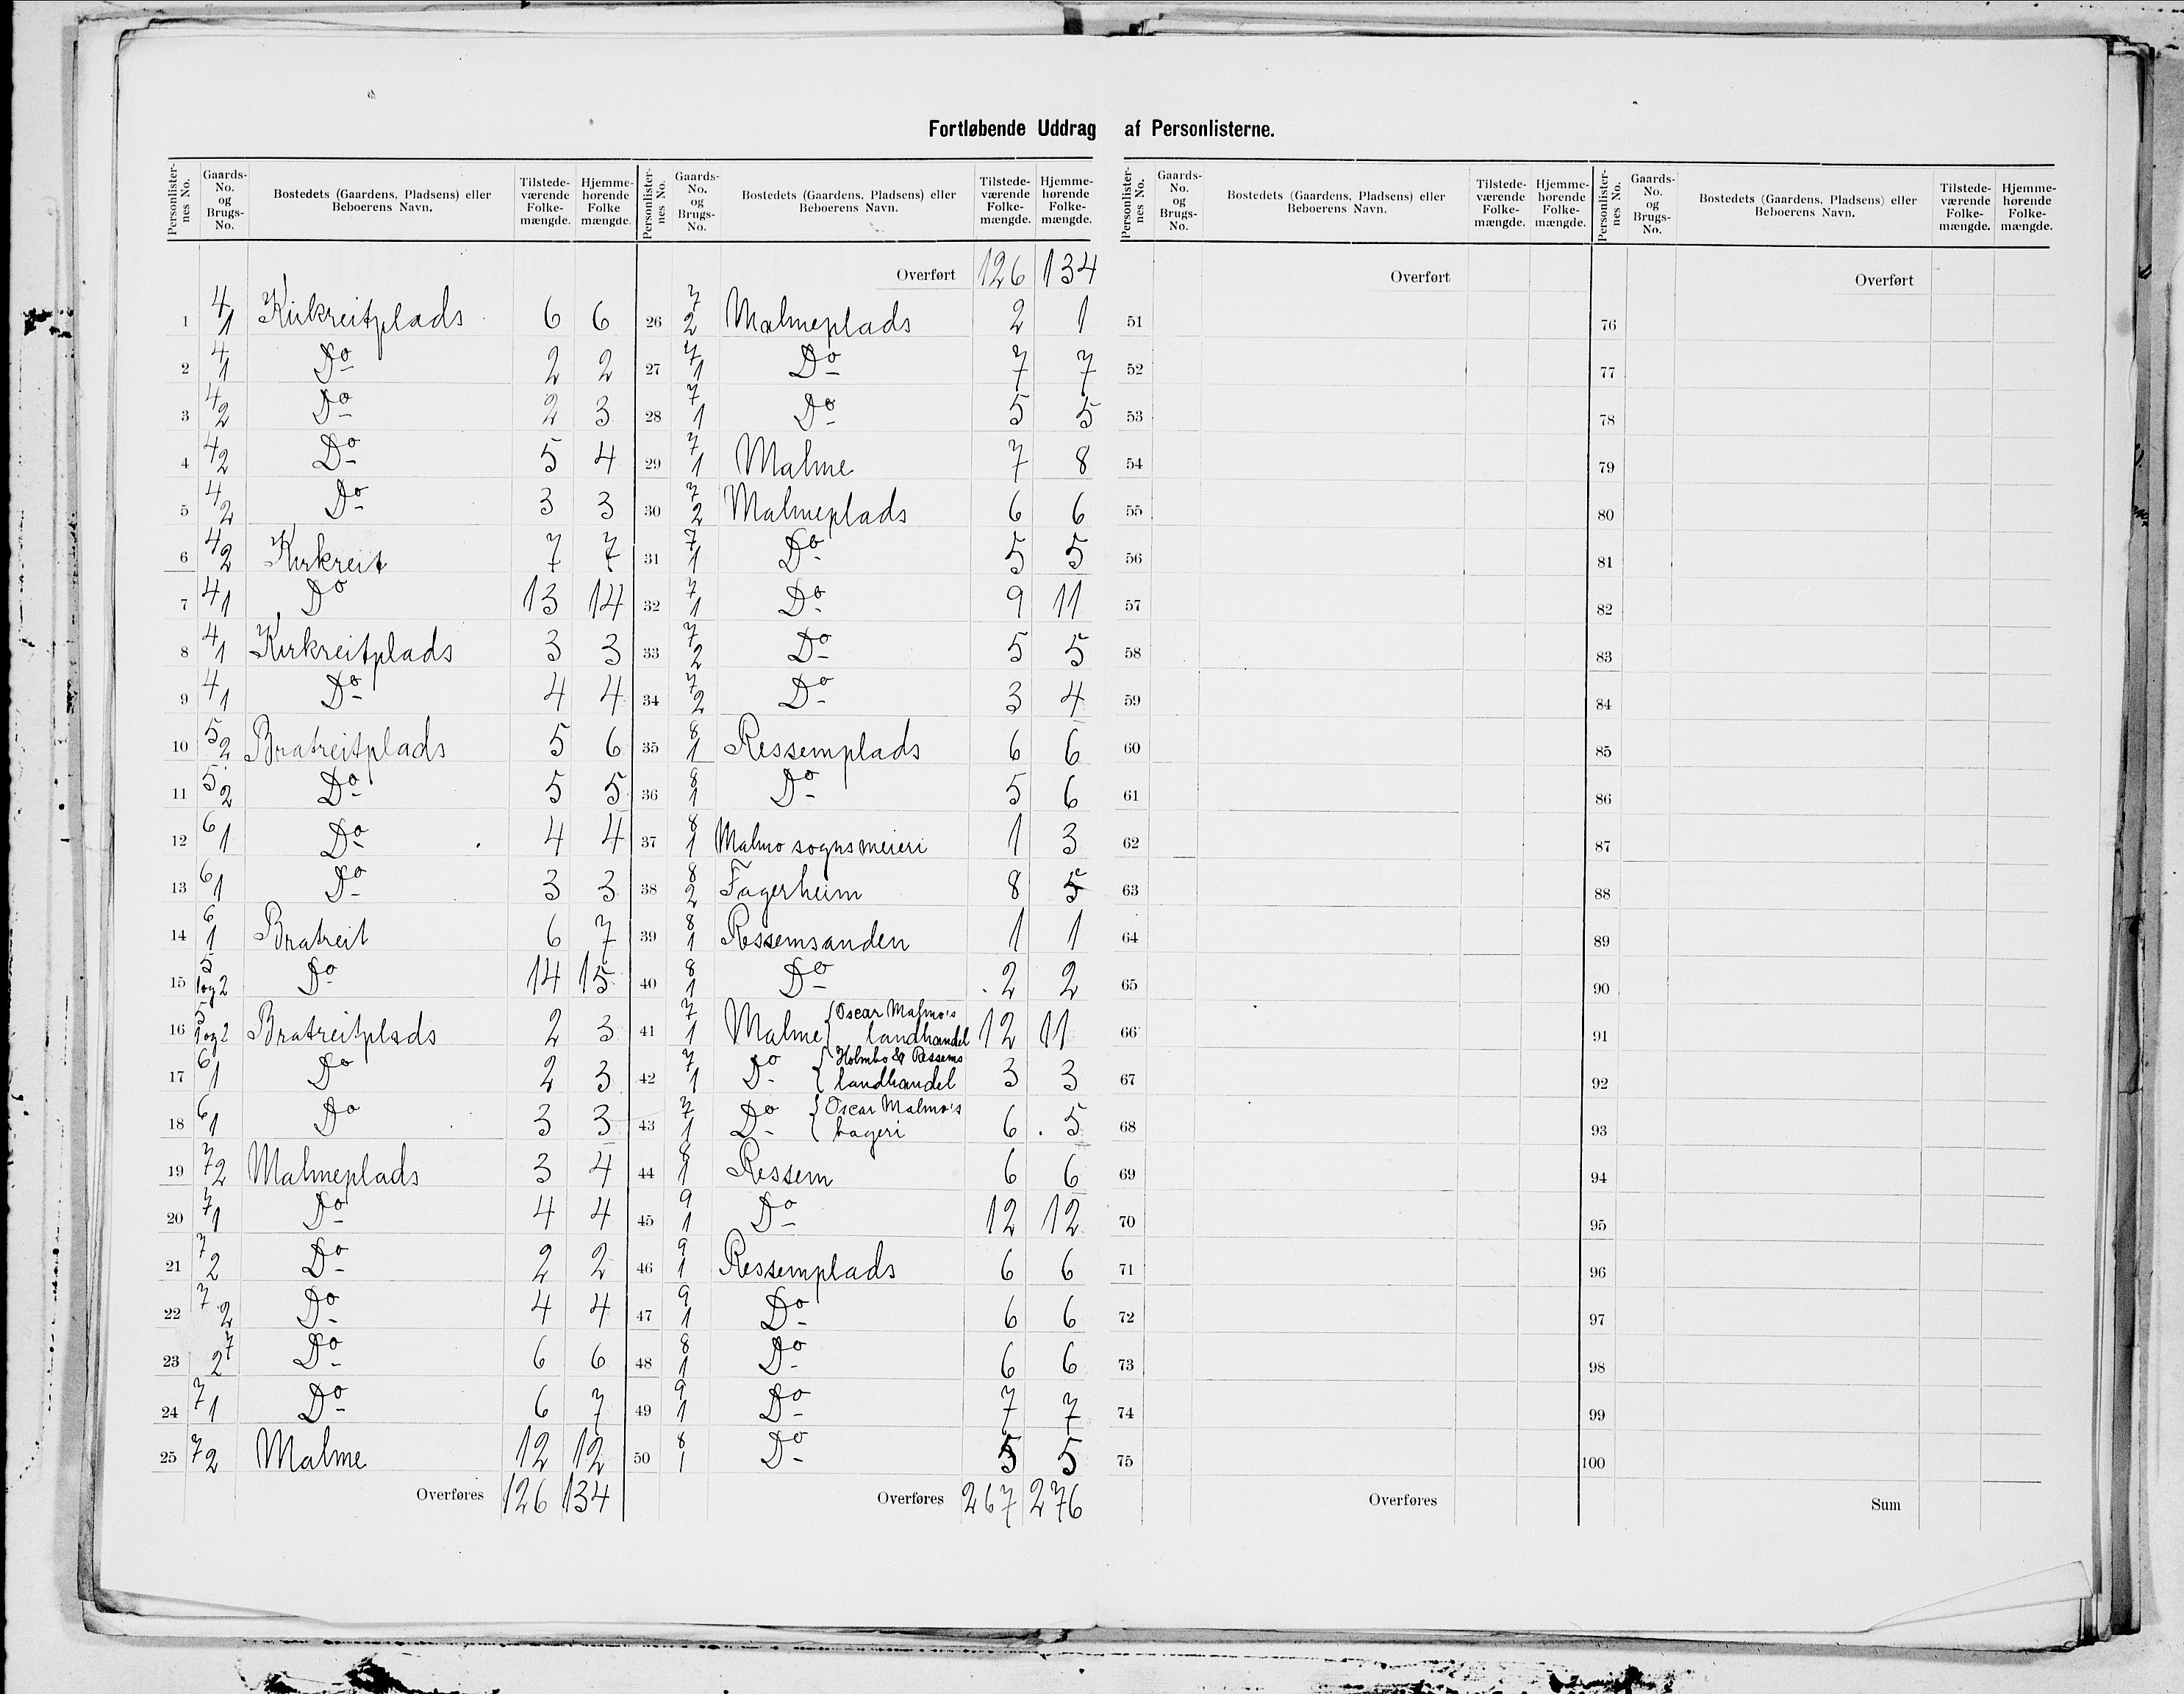 Fortløbende Uddrag af Personlisterne.
Personlister-nes No. Gaards-No. og Brugs-No. Bostedets (Gaardens, Pladsens) eller Beboerens Navn. Tilstede-værende Folke-mængde. Hjemme-hørende Folke mængde. Personlister-nes No. Gaards-No. og Brugs-No. Bostedets (Gaardens, Pladsens) eller Beboerens Navn. Tilstede-værende Folke-mængde. Hjemme-hørende Folke-mængde.
1 4/1 Kirkreitplads 6 6
2 4/1 Do 2 2
3 4/2 Do 2 3
4 4/2 Do 5 4
5 4/2 Do 3 3
6 4/2 Kirkreit 7 7
7 4/1 Do 13 14
8 4/1 Kirkreitplads 3 3
9 4/1 Do 4 4
10 5/2 Bratreitplads 5 6
11 5/2 Do 5 5
12 6/1 Do 4 4
13 6/1 Do 3 3
14 6/1 Bratreit 6 7
15 5/1 og 2 Do 14 15
16 5/1 og 2 Bratreitplads 2 3
17 6/1 Do 2 3
18 6/1 Do 3 3
19 7/2 Malmeplads 3 4
20 7/1 Do 4 4
21 7/2 Do 2 2
22 7/2 Do 4 4
23 7/2 Do 6 6
24 7/1 Do 6 7
25 7/2 Malme 12 12
Overføres 126 134
Overført 126 134
26 7/2 Malmeplads 2 1
27 7/1 Do 7 7
28 7/1 Do 5 5
29 7/1 Malme 7 8
30 7/2 Malmeplads 6 6
31 7/1 Do 5 5
32 7/1 Do 9 11
33 7/2 Do 5 5
34 7/2 Do 3 4
35 8/1 Ressemplads 6 6
36 8/1 Do 5 6
37 8/1 Malmo sogns meieri 1 3
38 8/2 Fagerheim 8 5
39 8/1 Ressemsanden 1 1
40 8/1 Do 2 2
41 7/1 Malme { Oscar Malmo's landhandel 12 11
42 7/1 Do { Holmbo & Ressems landhandel 3 3
43 7/1 Do { Oscar Malmo's bageri 6 5
44 8/1 Ressem 6 6
45 9/1 Do 12 12
46 9/1 Ressemplads 6 6
47 9/1 Do 6 6
48 8/1 Do 6 6
49 9/1 Do 7 7
50 8/1 Do 5 5
Overføres 267 276
Personlister-nes No. Gaards-No. og Brugs-No. Bostedets (Gaardens, Pladsens) eller Beboerens Navn. Tilstede-værende Folke-mængde. Hjemme-hørende Folke-mængde. Personlister-nes No. Gaards-No. og Brugs-No. Bostedets (Gaardens, Pladsens) eller Beboerens Navn. Tilstede-værende Folke-mængde. Hjemme-hørende Folke-mængde.
Overført
51
52
53
54
55
56
57
58
59
60
61
62
63
64
65
66
67
68
69
70
71
72
73
74
75
Overføres
Overført
76
77
78
79
80
81
82
83
84
85
86
87
88
89
90
91
92
93
94
95
96
97
98
99
100
Sum